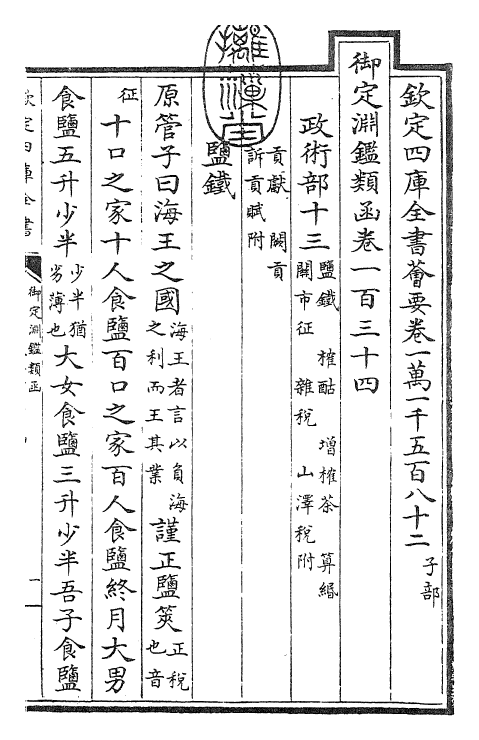 欽定四庫全書薈要卷一萬一千五百八十二 子部
御定淵鑑類函卷一百三十四
政術部十三 鹽鐵 榷酤 增榷茶 算緡
關市征 雜稅 山澤稅附
貢獻 闕貢
訴貢賦附
鹽鐵
原管子曰海王之國 海王者言以負海
之利而王其業 謹正鹽筴 正稅
也音
征 十口之家十人食鹽百口之家百人食鹽終月大男
食鹽五升少半 少半猶
劣薄也 大女食鹽三升少半吾子食鹽
欽定四庫全書
御定淵鑑類函
一